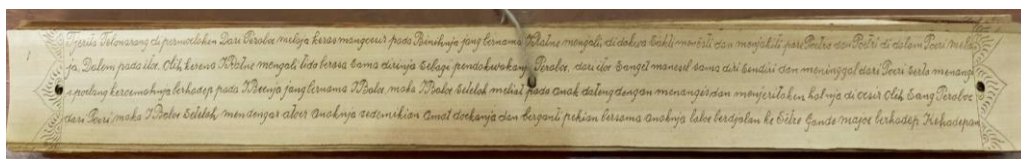 Tjerita Tjelonarang di permoelaken Dari Peraboe meloja keras mangoesir pada Bininhnja jang bernama KRatne mengali, di dakwa Sakti mensti dan menjakiti para Poetra dan Poetri di dalam Poeri melo
1 ja. Dalem pada itoe. Olih kerena KRatne mengali tida berasa sama dirinja Sebagi pendakwakanja Peraboe, dari itoe Sanget menesel sama diri Sendiri dan meninggal dari Poeri Serta menangi
s poelang keroemahnja berhadep pada IBoenja jang bernama IBoloe, maka IBoloe Setelah meliat pada anak dateng dengan menangis dan menjeritaken halnja di oesir Olih Sang Peraboe
dari Poeri, maka IBoloe Setelah mendengar atoer Anaknja sedemikian Amat doekanja dan berganti pekian bersama Anaknja laloe berdjalan ke Setre Gande majoe berhadep Kehadepan